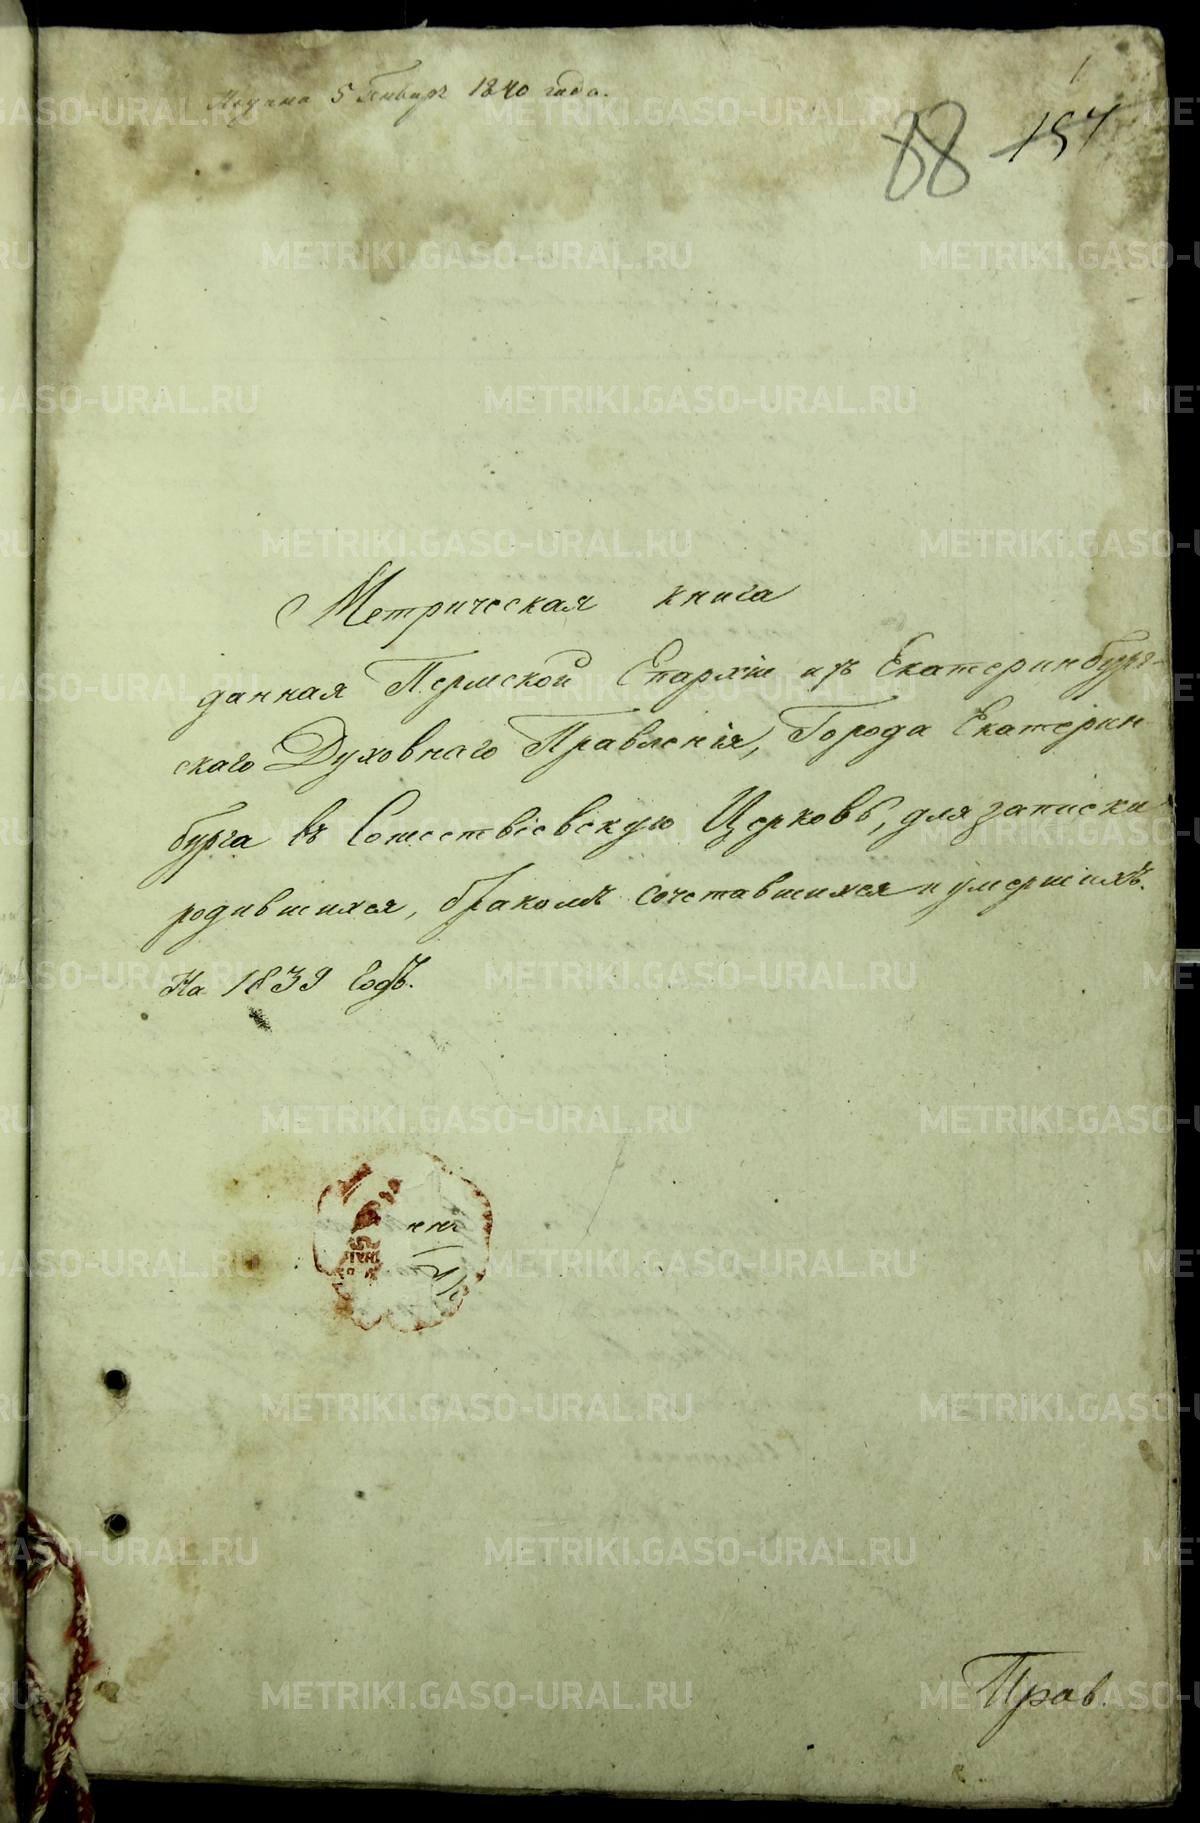 Подана 5 Январ 1840 года.
1
88 157
Метрическая книга
данная Пермской Епархіи изъ Екатеринбург-
скаго Духовнаго Правленія, Города Екатерин-
бурга въ Сошествіевскую Церковь, для записки
родившихся, бракомъ сочетавшихся и умершихъ.
На 1839 Годъ.
Прав.
METRIKI.GASO-URAL.RU